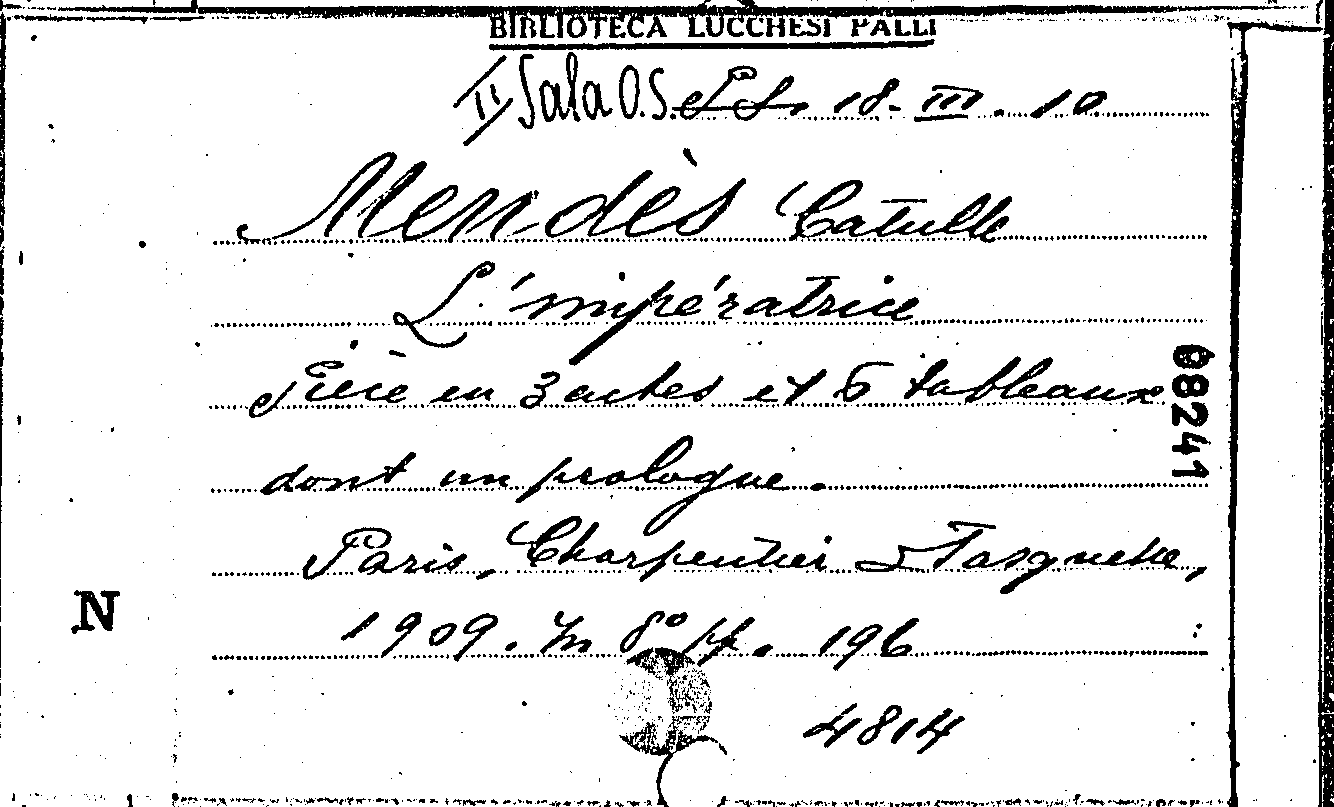 BIBLIOTECA LUCCHESI PALLI
II Sala O.S. 18-III.10
Mendès Catulle
L'impératrice
Pièce en 3 actes et 5 tableaux
dont un prologue.
Paris, Charpentier & Fasquelle,
1909. In 8° pp. 196
4814
08241
N